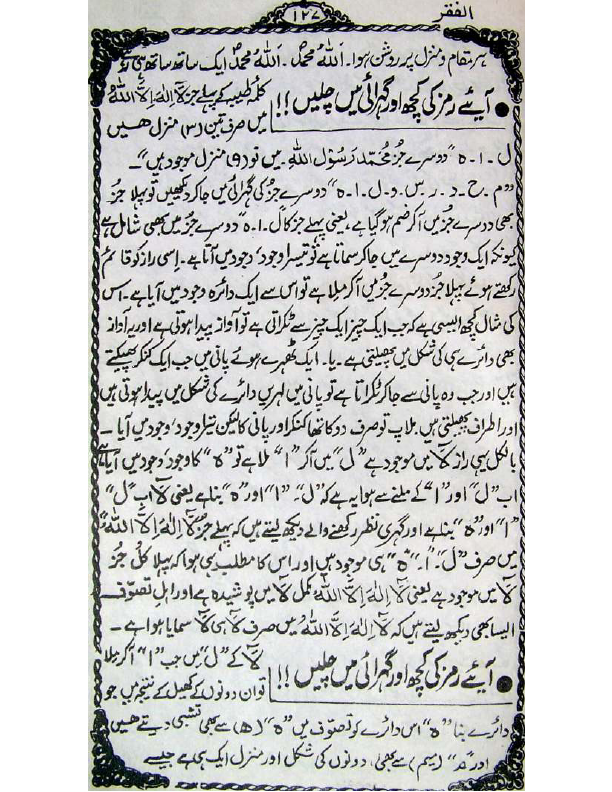 الفقر
۱۲۷
ہر مقام و منزل پر روشن ہوا۔ اَللّٰہُ محمدؐ۔ اَللّٰہُ محمدؐ ایک ساتھ ساتھ ہی
● آیئے رمز کی کچھ اور گہرائی میں چلیں!!
کلمہ طیبہ کے پہلے جز لَآ اِلٰہَ اِلَّا اللّٰہُ
میں صرف تین (۳) منزل ھیں
ل ۔ ا ۔ ہ" دوسرے جُز مُحَمَّد رَسُوْلُ اللّٰہِ ۔ میں نو (۹) منزل موجود ہیں"۔
"م ۔ ح ۔ د ۔ ر ۔ س ۔ و ۔ ل ۔ ا ۔ ہ" دوسرے جُز کی گہرائی میں جا کر دیکھیں تو پہلا جُز
بھی دوسرے جُز میں آ کر ضم ہو گیا ہے، یعنی پہلے جز کا ل ۔ ا ۔ ہ" دوسرے جُز میں بھی شامل ہے
کیونکہ ایک وجود دوسرے میں جا کر سماتا ہے تو تیسرا وجود' وجود میں آتا ہے۔ اِسی راز کو قائم
رکھتے ہوئے پہلا جُز دوسرے جُز میں آ کر مِلا ہے تو اس سے ایک دائرہ وجود میں آیا ہے۔ اس
کی مثال کچھ ایسی ہے کہ جب ایک چیز ایک چیز سے ٹکراتی ہے تو آواز پیدا ہوتی ہے اور یہ آواز
بھی دائرے ہی کی شکل میں پھیلتی ہے۔ یا۔ ایک ٹھہرے ہوئے پانی میں جب ایک کنکر پھینکتے
ہیں اور جب وہ پانی سے جا کر ٹکراتا ہے تو پانی میں لہریں دائرے کی شکل میں پیدا ہوتی ہیں
اور اطراف پھیلتی ہیں۔ ملاپ تو صرف دو کا تھا کنکر اور پانی کا لیکن تیسرا وجود' وجود میں آیا۔
بالکل یہی راز لَآ میں موجود ہے "ل" میں آ کر "ا" ملا ہے تو "ہ" کا وجود' وجود میں آیا ہے
اب "ل" اور "ا" کے ملنے سے ہوا یہ ہے کہ "ل"۔ "ا" اور "ہ" بنا ہے یعنی لَآ اب "ل"
"ا" اور "ہ" بنا ہے اور گہری نظر رکھنے والے دیکھ لیتے ہیں کہ پہلے جُز "لَآ اِلٰہَ اِلَّا اللّٰہُ"
میں صرف "ل"۔ "ا"۔ "ہ" ہی موجود ہیں اور اس کا مطلب یہی ہوا کہ پہلا کُل جُز
لَآ میں موجود ہے یعنی لَآ اِلٰہَ اِلَّا اللّٰہُ مکمل لَآ میں پوشیدہ ہے اور اہلِ تصوّف
ایسا بھی دیکھ لیتے ہیں کہ لَآ اِلٰہَ اِلَّا اللّٰہُ میں صرف لَآ ہی لَآ سمایا ہوا ہے۔
● آیئے رمز کی کچھ اور گہرائی میں چلیں!!
لَآ کے "ل" میں جب "ا" آ کر مِلا
تو ان دونوں کے کھیل کے نتیجہ میں جو
دائرے بنا "ہ" اس دائرے کو تصوّف میں "ہ" (ھ) سے بھی تشبیہ دیتے ھیں
اور "م" (میم) سے بھی، دونوں کی شکل اور منزل ایک ہی ہے جیسے